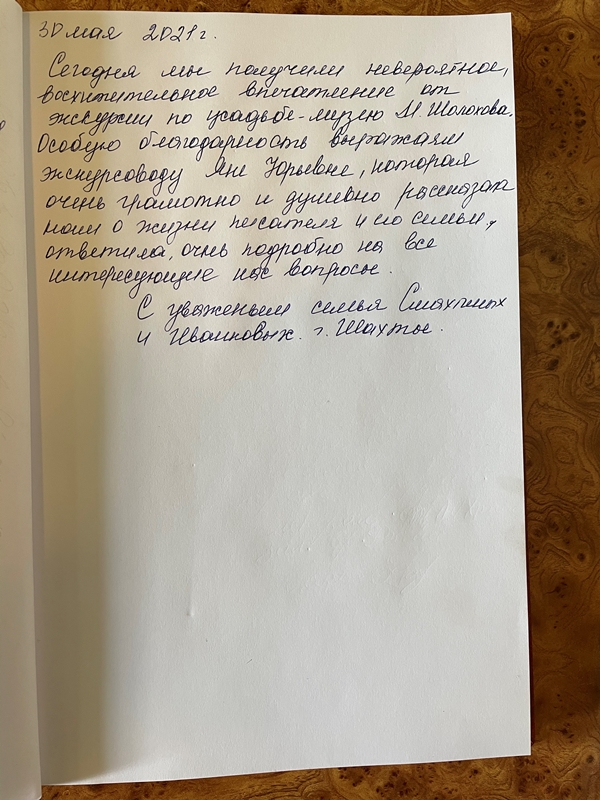 30 мая 2021 г.
Сегодня мы получили невероятное,
восхитительное впечатление от
экскурсии по усадьбе-музею М. Шолохова.
Особую благодарность выражаем
экскурсоводу Яне Юрьевне, которая
очень грамотно и душевно рассказала
нам о жизни писателя и его семьи,
ответила, очень подробно на все
интересующие нас вопросы.
С уваженьем семья
и Иванновых. г. Шахты.